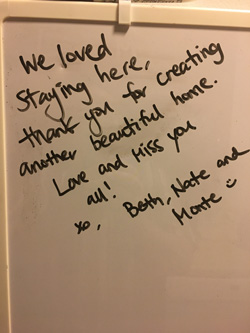 We loved
Staying here,
thank you for creating
another beautiful home.
Love and Miss you
all!
xo, Beth, Nate and
Monte